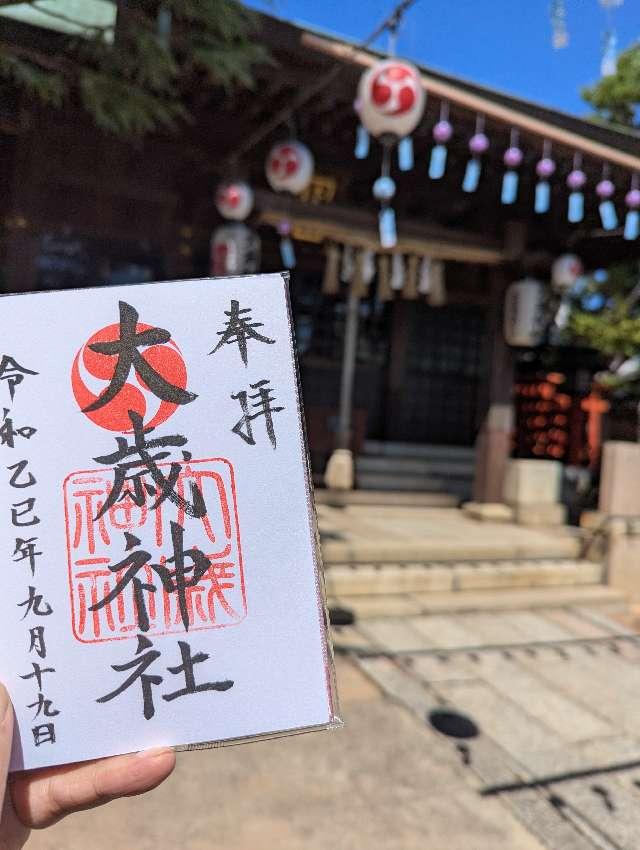 奉拝
大歳神社
大歳
神社
令和乙巳年九月十九日